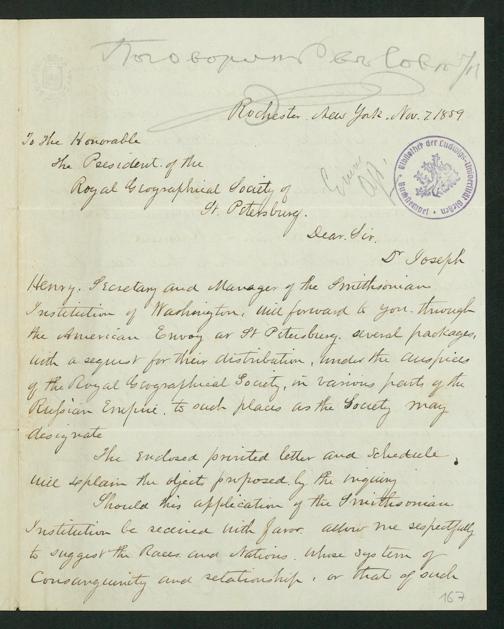 Rochester, New York, Nov. 7 1859
To the Honorable
The President of the
Royal Geographical Society of
St. Petersburg.
Dear Sir,
Dr Joseph
Henry, Secretary and Manager of the Smithsonian
Institution of Washington, will forward to you through
the American Envoy at St Petersburg, several packages,
with a request for their distribution, under the auspices
of the Royal Geographical Society, in various parts of the
Russian Empire, to such places as the Society may
designate
The enclosed printed letter and schedule,
will explain the object proposed by the inquiry
Should this application of the Smithsonian
Institution be received with favor, allow me respectfully
to suggest the Races and Nations, whose system of
Consanguinity and relationship, or that of such
167
Bibliothek der Ludwigs-Universität Gießen